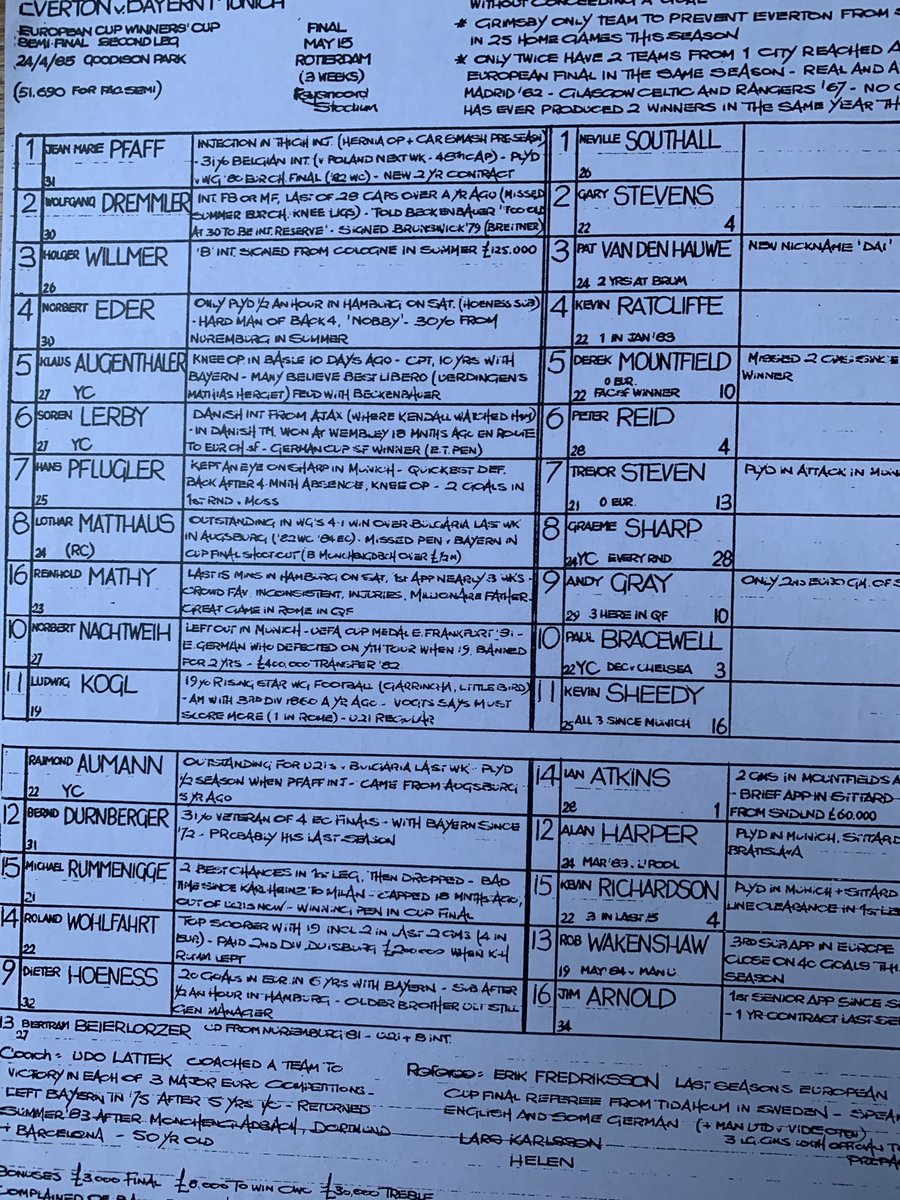 EVERTON v. BAYERN MUNICH
EUROPEAN CUP WINNERS' CUP
SEMI-FINAL SECOND LEG
24/4/85 GOODISON PARK
(51,690 FOR FAC SEMI)
FINAL
MAY 15
ROTTERDAM
(3 WEEKS)
Feyenoord
Stadium
WITHOUT CONCEDING A GOAL
* GRIMSBY ONLY TEAM TO PREVENT EVERTON FROM S
IN 25 HOME GAMES THIS SEASON
* ONLY TWICE HAVE 2 TEAMS FROM 1 CITY REACHED A
EUROPEAN FINAL IN THE SAME SEASON - REAL AND A
MADRID '62 - GLASGOW CELTIC AND RANGERS '67 - NO C
HAS EVER PRODUCED 2 WINNERS IN THE SAME YEAR TH
1 JEAN MARIE PFAFF
31
INJECTION IN THIGH INT. (HERNIA OP + CAR SMASH PRE-SEASON)
- 31 y/o BELGIAN INT. (v POLAND NEXT WK - 48TH CAP) - PLYD
v WG '80 EUR CH. FINAL ('82 WC) - NEW 2 YR CONTRACT
2 WOLFGANG DREMMLER
30
INT. FB OR MF, LAST OF 28 CAPS OVER A YR AGO (MISSED
SUMMER EUR CH. KNEE LIGS) - TOLD BECKENBAUER 'TOO OLD
AT 30 TO BE INT. RESERVE' - SIGNED BRUNSWICK '79 (BREITNER)
3 HOLGER WILLMER
26
'B' INT. SIGNED FROM COLOGNE IN SUMMER £125.000
4 NORBERT EDER
30
ONLY PLYD 1/2 AN HOUR IN HAMBURG ON SAT. (HOENESS SUB)
- HARD MAN OF BACK 4, 'NOBBY' - 30 y/o FROM
NUREMBURG IN SUMMER
5 KLAUS AUGENTHALER
27 YC
KNEE OP IN BASLE 10 DAYS AGO - CPT, 10 YRS WITH
BAYERN - MANY BELIEVE BEST LIBERO (UERDINGEN'S
MATHIAS HERGET) FEUD WITH BECKENBAUER
6 SOREN LERBY
27 YC
DANISH INT FROM AJAX (WHERE KENDALL WATCHED HIM)
- IN DANISH TM. WON AT WEMBLEY 18 MNTHS AGO EN ROUTE
TO EUR CH SF - GERMAN CUP SF WINNER (E.T. PEN)
7 HANS PFLUGLER
25
KEPT AN EYE ON SHARP IN MUNICH - QUICKEST DEF.
BACK AFTER 4 MNTH ABSENCE, KNEE OP - 2 GOALS IN
1ST RND v MOSS
8 LOTHAR MATTHAUS
24 (RC)
OUTSTANDING IN WG'S 4-1 WIN OVER BULGARIA LAST WK
IN AUGSBURG ('82 WC '84 EC) - MISSED PEN v BAYERN IN
CUP FINAL SHOOTOUT (B MUNCHENGDBCH OVER £1/2M)
16 REINHOLD MATHY
23
LAST 15 MINS IN HAMBURG ON SAT, 1ST APP NEARLY 3 WKS -
CROWD FAV. INCONSISTENT, INJURIES, MILLIONAIRE FATHER
GREAT GAME IN ROME IN QF
10 NORBERT NACHTWEIH
27
LEFT OUT IN MUNICH - UEFA CUP MEDAL E. FRANKFURT '81 -
E. GERMAN WHO DEFECTED ON YTH TOUR WHEN 19, BANNED
FOR 2 YRS - £400,000 TRANSFER '82
11 LUDWIG KOGL
19
19 y/o RISING STAR WG FOOTBALL (GARRINCHA, LITTLE BIRD)
- AM WITH 3RD DIV 1860 A YR AGO - VOGTS SAYS MUST
SCORE MORE (1 IN ROME) - U21 REGULAR
1 NEVILLE SOUTHALL
26
2 GARY STEVENS
22 4
3 PAT VAN DEN HAUWE
24 2 YRS AT BRUM
NEW NICKNAME 'DAI'
4 KEVIN RATCLIFFE
22 1 IN JAN '83
5 DEREK MOUNTFIELD
0 EUR.
22 FACSF WINNER 10
MISSED 2 GMS SINCE
WINNER
6 PETER REID
28 4
7 TREVOR STEVEN
21 0 EUR. 13
PLYD IN ATTACK IN MUN
8 GRAEME SHARP
24 YC EVERY RND 28
9 ANDY GRAY
29 3 HERE IN QF 10
ONLY 2ND EURO GM. OF S
10 PAUL BRACEWELL
22 YC DEC v CHELSEA 3
11 KEVIN SHEEDY
25 ALL 3 SINCE MUNICH 16
RAIMOND AUMANN
22 YC
OUTSTANDING FOR U21s v BULGARIA LAST WK - PLYD
1/2 SEASON WHEN PFAFF INJ - CAME FROM AUGSBURG
3 YR AGO
12 BERND DURNBERGER
31
31 y/o VETERAN OF 4 EC FINALS - WITH BAYERN SINCE
'72 - PROBABLY HIS LAST SEASON
15 MICHAEL RUMMENIGGE
21
2 BEST CHANCES IN 1ST LEG, THEN DROPPED - BAD
TIME SINCE KARL HEINZ TO MILAN - CAPPED 18 MNTHS AGO,
OUT OF U21S NOW - WINNING PEN IN CUP FINAL
14 ROLAND WOHLFAHRT
22
TOP SCORER WITH 19 INCL 2 IN LAST 2 GMS (4 IN
EUR) - PAID 2ND DIV. DUISBURG £200000 WHEN K-H
RUMM LEFT
9 DIETER HOENESS
32
20 GOALS IN EUR. IN 6 YRS WITH BAYERN - SUB AFTER
1/2 AN HOUR IN HAMBURG - OLDER BROTHER ULI STILL
GEN. MANAGER
13 BERTRAM BEIERLORZER UD FROM NUREMBURG 81 - U21 + B INT.
27
14 IAN ATKINS
28 1
2 GMS IN MOUNTFIELDS A
- BRIEF APP IN SITTARD
FROM SNDLND £60.000
12 ALAN HARPER
24 MAR '83 L'POOL
PLYD IN MUNICH, SITTARD
BRATISLAVA
15 KEVIN RICHARDSON
22 3 IN LAST 15 4
PLYD IN MUNICH + SITTARD
LINE CLEARANCE IN 1ST LE
13 ROB WAKENSHAW
19 MAY 84 v MAN U
3RD SUB APP IN EUROPE
CLOSE ON 40 GOALS TH
SEASON
16 JIM ARNOLD
34
1ST SENIOR APP SINCE S
- 1 YR CONTRACT LAST SE
Coach = UDO LATTEK COACHED A TEAM TO
VICTORY IN EACH OF 3 MAJOR EURO COMPETITIONS -
LEFT BAYERN IN '75 AFTER 5 YRS i/c - RETURNED
SUMMER '83 AFTER MONCHENGLADBACH, DORTMUND
+ BARCELONA - 50 YR OLD
Referee = ERIK FREDRIKSSON LAST SEASONS EUROPEAN
CUP FINAL REFEREE FROM TIDAHOLM IN SWEDEN - SPEA
ENGLISH AND SOME GERMAN (+ MAN UTD v VIDEOTEN)
LARS KARLSSON 3 LG. GMS WITH OFFICIAN T
HELEN PREPA
BONUSES £3000 FINAL £8,000 TO WIN CWC £30,000 TREBLE
COMPLAINED OF